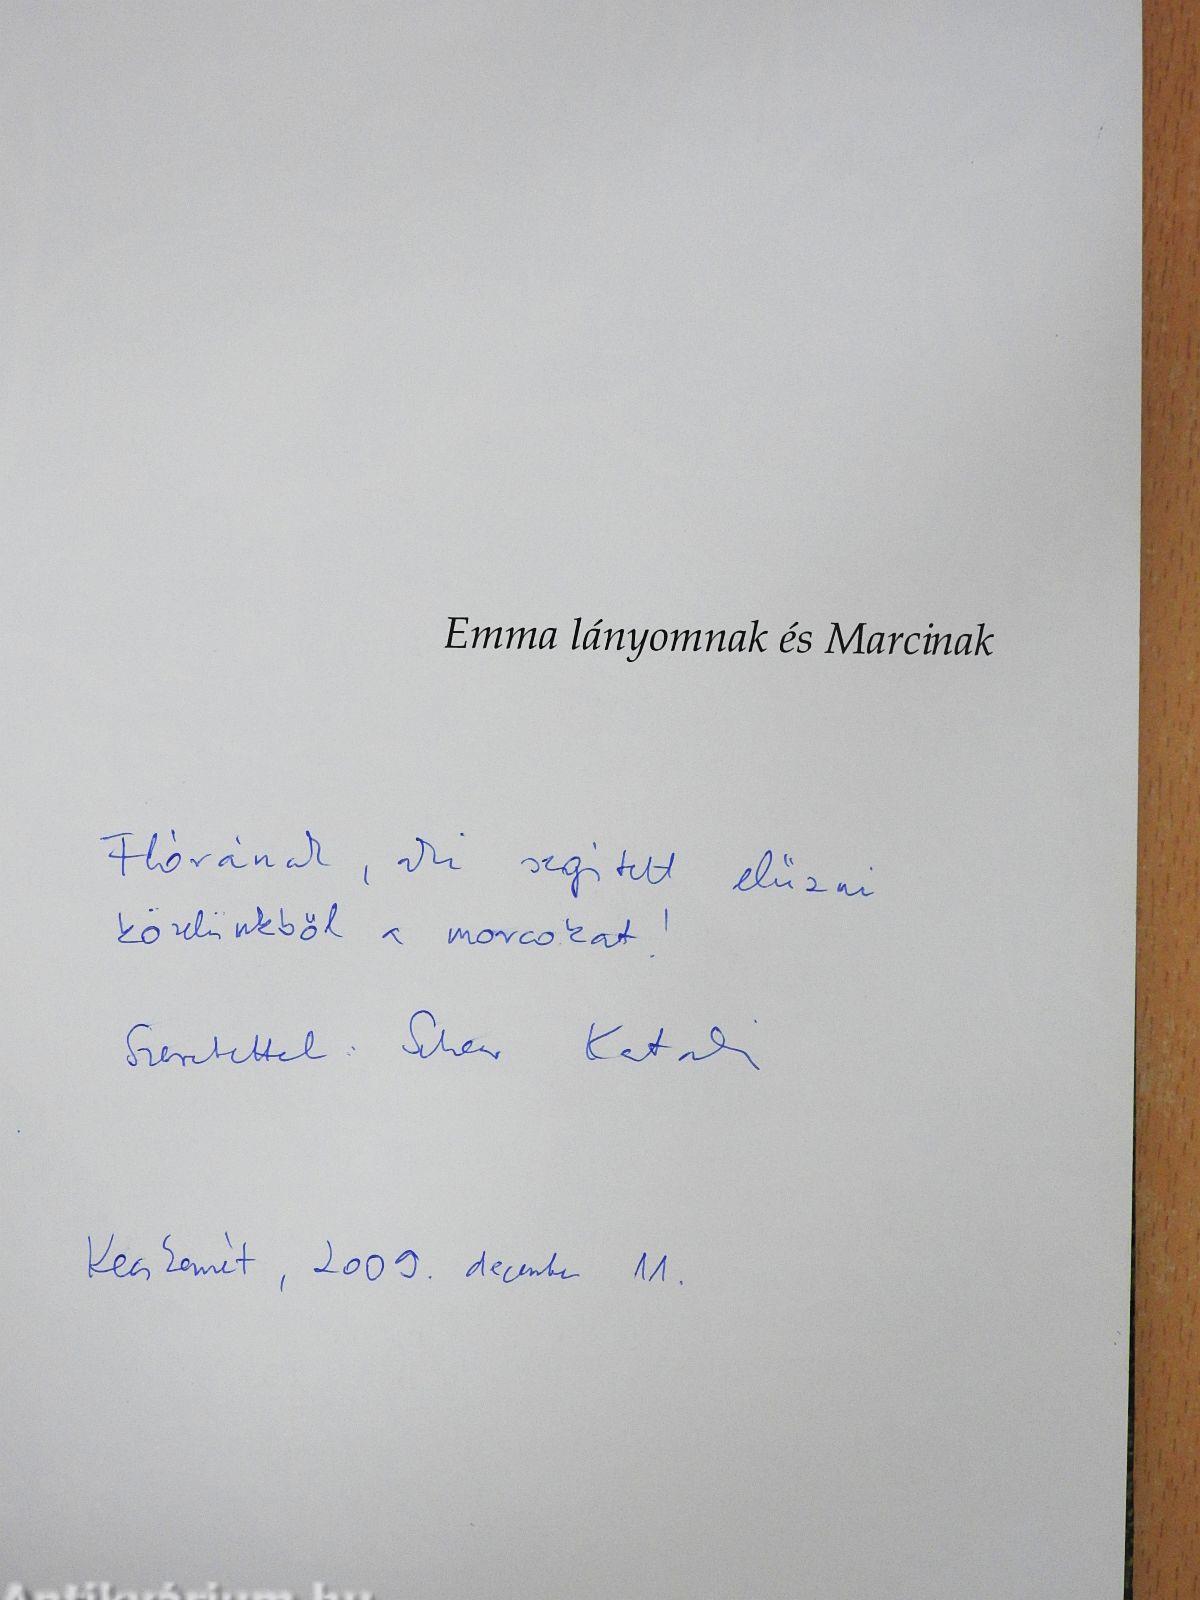 Emma lányomnak és Marcinak
Flórának, aki segített elűzni
közelünkből a morcokat!
Szeretettel: Scher Katalin
Kecskemét, 2009. december 11.
Antikvárium.hu